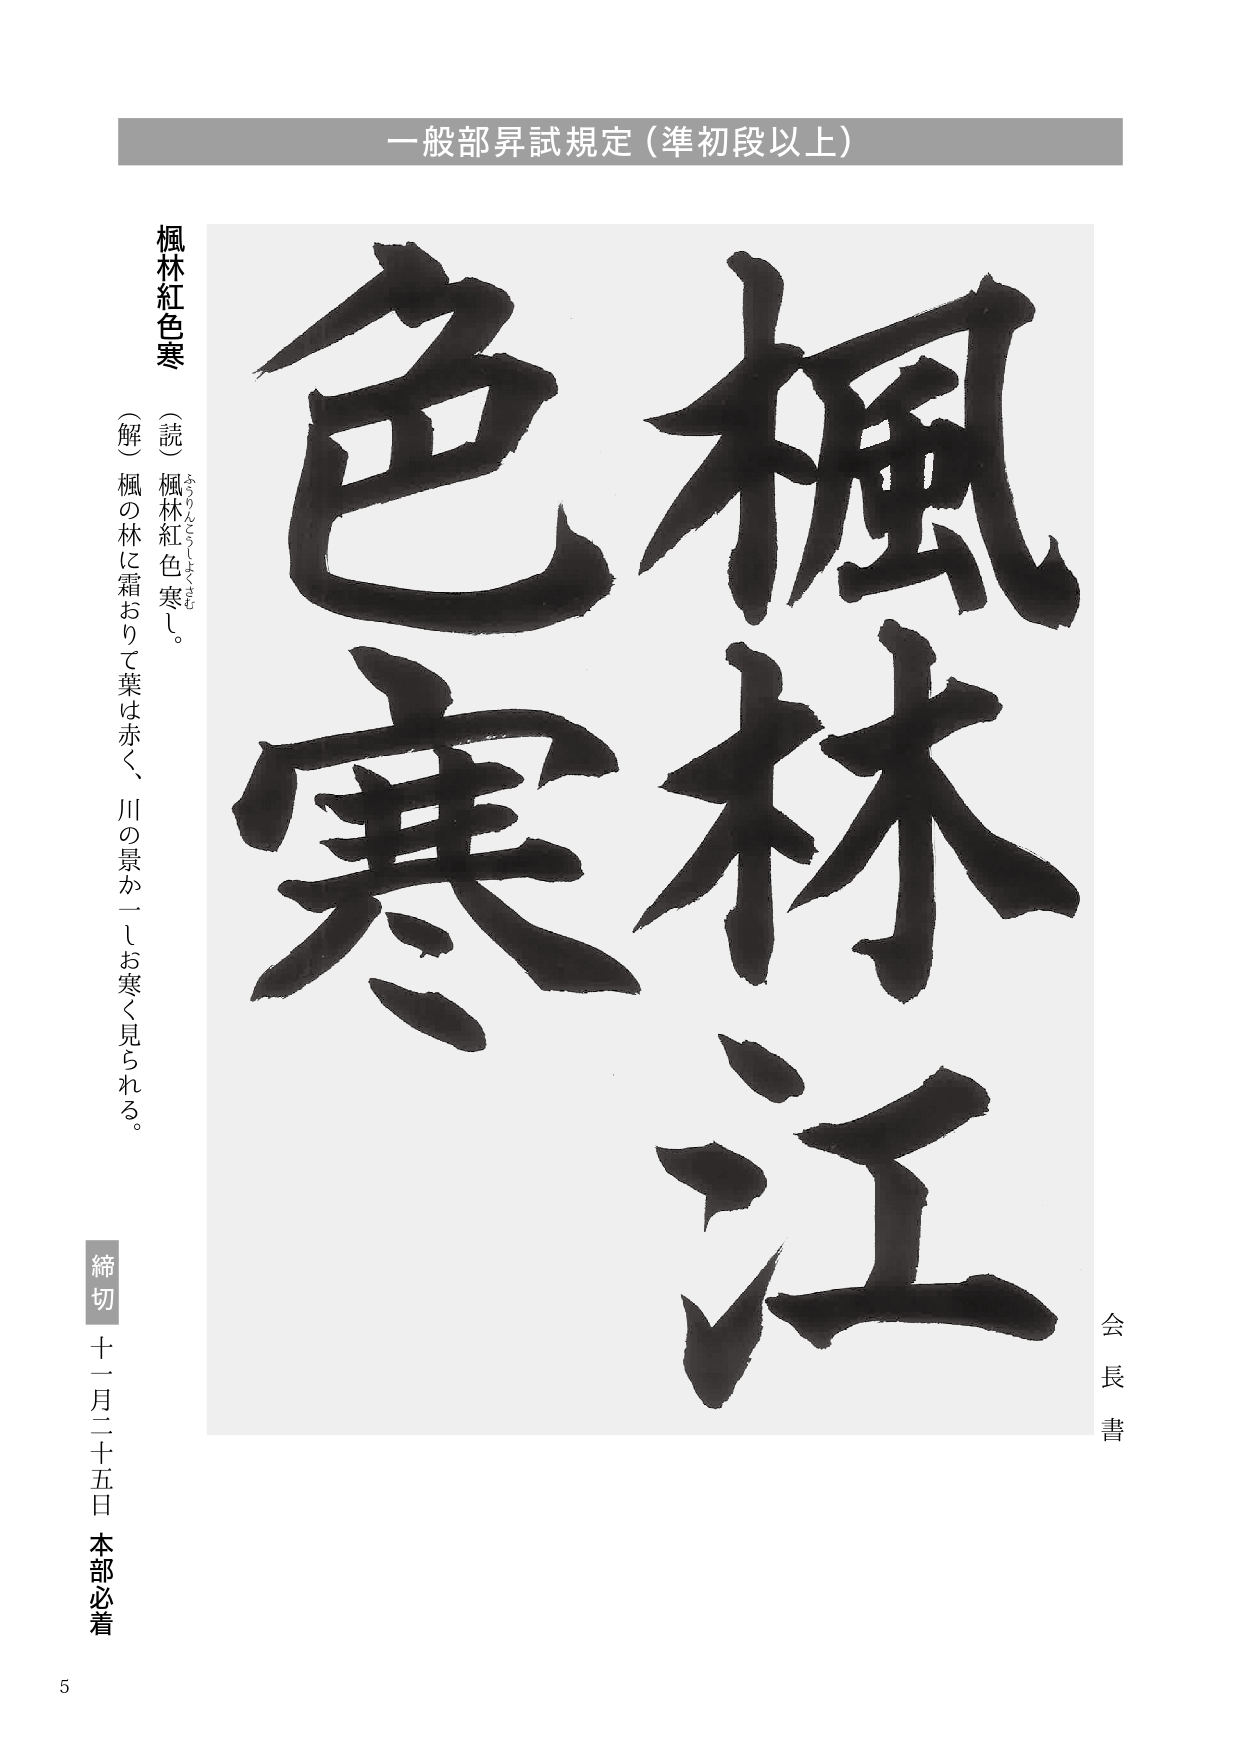 一般部昇試規定（準初段以上）
会長書
楓林江
色寒
楓林紅色寒
（読）楓林紅色寒し。
ふうりんこうしょくさむ
（解）楓の林に霜おりて葉は赤く、川の景か一しお寒く見られる。
締切 十一月二十五日 本部必着
5